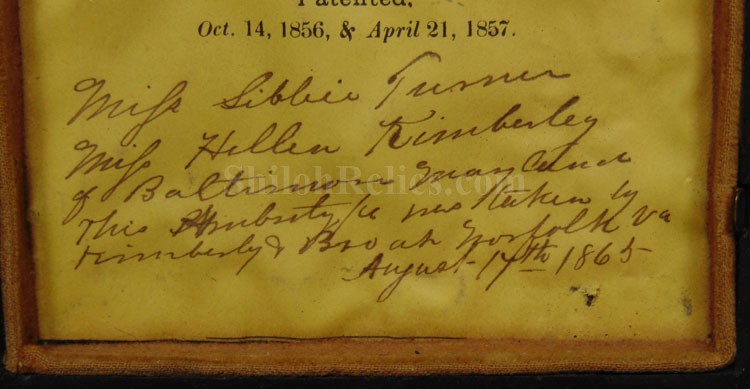 Patented,
Oct. 14, 1856, & April 21, 1857.
Miss Libbie Turner
Miss Hellen Kimberley
of Baltimore Maryland
This Ambertype was taken by
Kimberly & Bro at Norfolk Va
August 17th 1865
ShilohRelics.com